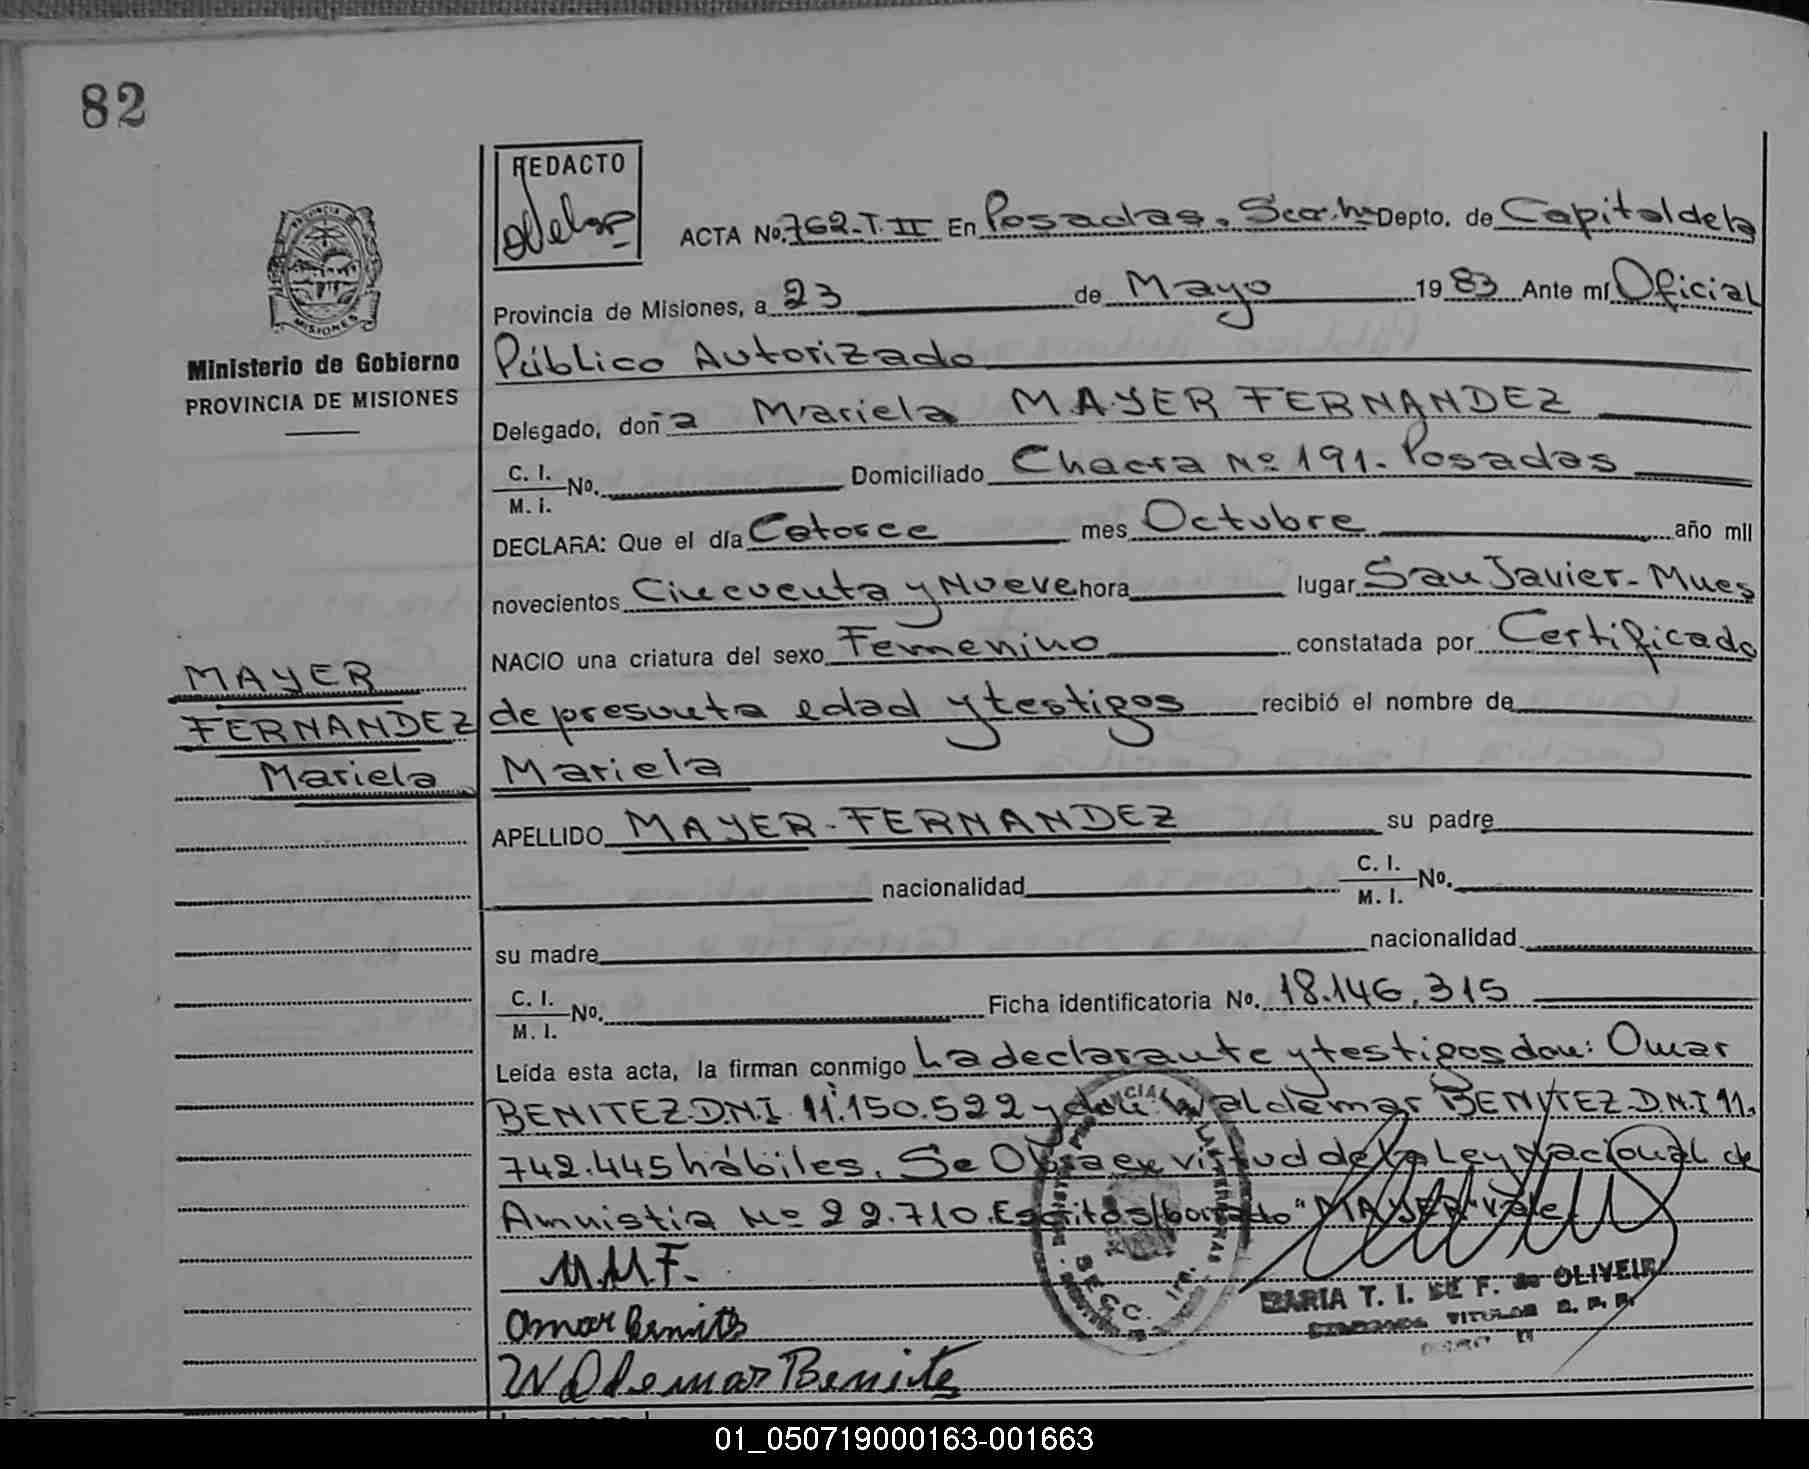 82
REDACTO
ACTA No. 762-T.II En Posadas. Depto. de Capital de la
PROVINCIA DE MISIONES
Provincia de Misiones, a 23 de Mayo 1983 Ante mí Oficial
Ministerio de Gobierno
PROVINCIA DE MISIONES
Público Autorizado
Delegado, doña Mariela MAYER FERNANDEZ
C. I. M. I. No. Domiciliado Chacra Nº 191. Posadas
DECLARA: Que el día Catorce mes Octubre año mil
novecientos Cincuenta y Nueve hora lugar San Javier - Mnes
NACIO una criatura del sexo Femenino constatada por Certificado
MAYER
FERNANDEZ
Mariela
de presunta edad y testigos recibió el nombre de
Mariela
APELLIDO MAYER - FERNANDEZ su padre
nacionalidad C. I. M. I. No.
su madre nacionalidad
C. I. M. I. No. Ficha identificatoria No. 18.146.315
Leída esta acta, la firman conmigo La declarante y testigos don: Omar
BENITEZ D.N.I 11.150.522 y don Waldemar BENITEZ D.N.I 11.
742.445 hábiles. Se Obra en virtud de la Ley Nacional de
Amnistía Nº 22.710. Escrito s/borrado "MAYER" Vale
M.M.F.
MARIA T. I. F. de OLIVEIRA
TITULAR
Omar Benitez
Waldemar Benitez
01_050719000163-001663